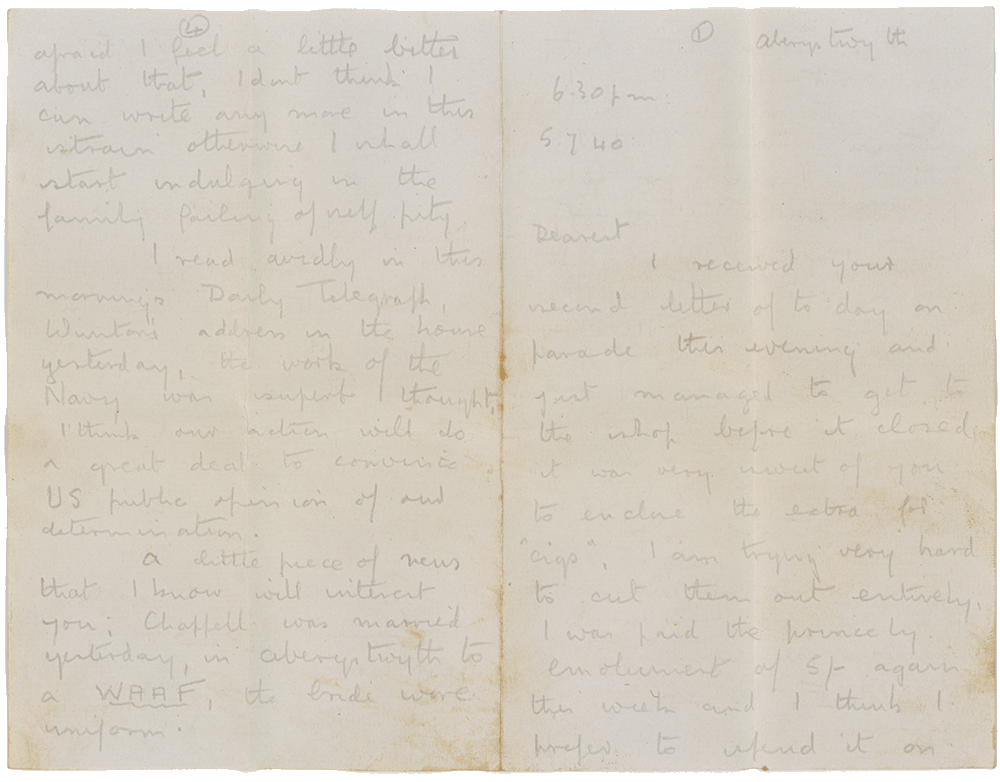 4
afraid I feel a little bitter
about that, I dont think I
can write any more in this
strain otherwise I shall
start indulging in the
family failing of self pity.
I read avidly in this
morning's Daily Telegraph,
Winston's address in the house
yesterday, the work of the
Navy was superb I thought,
I think our action will do
a great deal to convince
US public opinion of our
determination.
A little piece of news
that I know will interest
you; Chappell was married
yesterday, in Aberystwyth to
a WAAF, the bride wore
uniform.
1 Aberystwyth
6.30 pm
5 7 40
Dearest
I received your
second letter of to day on
parade this evening and
just managed to get to
the shop before it closed,
it was very sweet of you
to enclose the extra for
"cigs", I am trying very hard
to cut them out entirely,
I was paid the princely
emolument of 5/- again
this week and I think I
prefer to spend it on